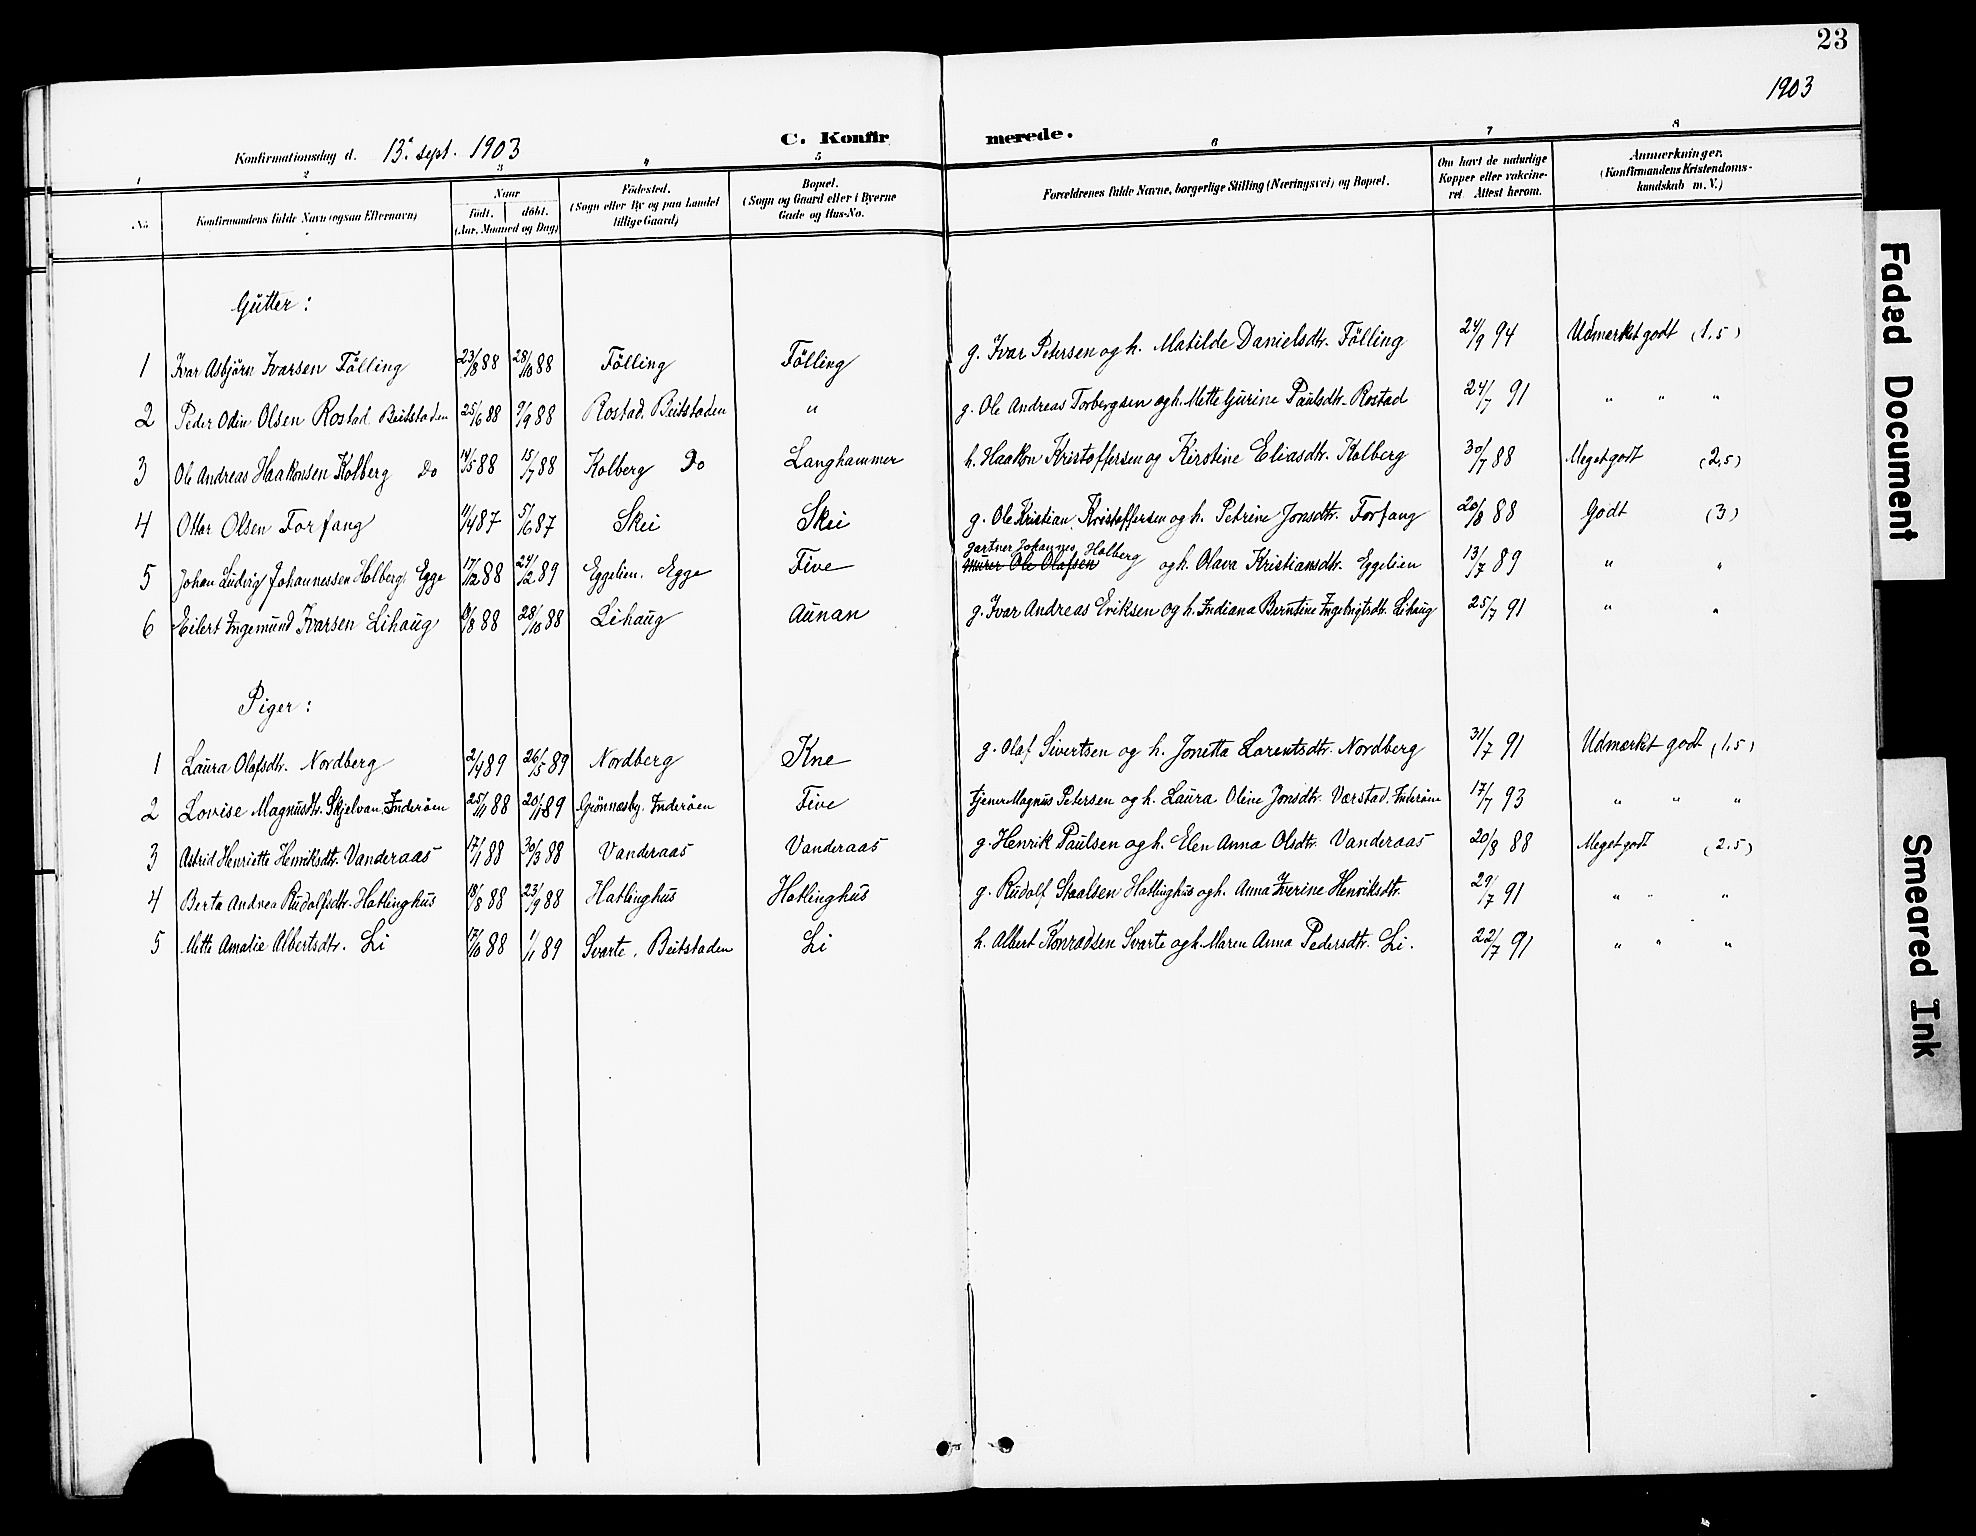 23
1903
Konfirmationsdag d. 13. sept. 1903
C. Konfirmerede.
1 2 3 4 5 6 7 8
No.
Konfirmandens fulde Navn (ogsaa Efternavn)
Naar
født. døbt.
(Aar, Maaned og Dag)
Fødested.
(Sogn eller By og paa Landet
tillige Gaard)
Bopæl.
(Sogn og Gaard eller i Byerne
Gade og Hus-No.
Forældrenes fulde Navne, borgerlige Stilling (Næringsvei) og Bopæl.
Om havt de naturlige
Kopper eller vakcine-
ret. Attest herom.
Anmærkninger.
(Konfirmandens Kristendoms-
kundskab m. V.)
Gutter:
1 Ivar Asbjörn Ivarsen Fölling 23/8 88 28/10 88 Fölling Fölling g. Ivar Petersen og h. Matilde Danielsdtr. Fölling 24/9 94 Udmerket godt (1,5)
2 Peder Odin Olsen Rostad Beitstaden 25/6 88 9/9 88 Rostad. Beitstaden " g. Ole Andreas Torbergsen og h. Mette Gurine Paulsdtr. Rostad 24/7 91 " " "
3 Ole Andreas Haakonsen Kolberg Do 14/5 88 15/7 88 Kolberg Do Langhammer h. Haakon Kristoffersen og Kirstine Eliasdtr. Kolberg 30/7 88 Meget godt (2,5)
4 Ottar Olsen Forfang 11/4 87 5/6 87 Skei Skei g. Ole Kristian Kristoffersen og h. Petrine Jonsdtr. Forfang 20/8 88 Godt (3)
gartner Johannes Holberg
5 Johan Ludvig Johannessen Holberg Egge 17/12 88 24/2 89 Eggelien. Egge Five Murer Ole Olafsen og h. Olava Kristiansdtr. Eggelien 13/7 89 " "
6 Eilert Ingemund Ivarsen Lihaug /8 88 28/10 88 Lihaug Aunan g. Ivar Andreas Eriksen og h. Indiana Berntine Ingebrigtsdtr. Lihaug 25/7 91 " "
Piger:
1 Laura Olafsdtr. Nordberg 2/4 89 26/5 89 Nordberg Kne g. Olaf Sivertsen og h. Jonetta Lorentsdtr. Nordberg 31/7 91 Udmærkt godt (1,5)
2 Lovise Magnusdtr. Skjelvan. Inderöen 25/11 88 20/1 89 Grönnesby. Inderöen Five tjener Magnus Petersen og h. Laura Oline Jonsdtr. Værstad. Inderöen 17/7 93 " " "
3 Astrid Henriette Henriksdtr. Vanderaas 17/1 88 30/3 88 Vanderaas Vanderaas g. Henrik Paulsen og h. Elen Anna Olsdtr. Vanderaas 20/8 88 Meget godt (2.5)
4 Berta Andrea Rudolfsdtr. Hatlinghus 18/8 88 23/9 88 Hatlinghus Hatlinghus g. Rudolf Staalsen Hatlinghus og h. Anna Iverine Henriksdtr. 29/7 91 " " "
5 Mette Amalie Albertsdtr. Li 17/10 88 1/1 89 Svarte, Beitstaden Li h. Albert Konradsen Svarte og h. Maren Anna Pedersdtr. Li. 22/7 91 " " "
Faded Document
Smeared Ink